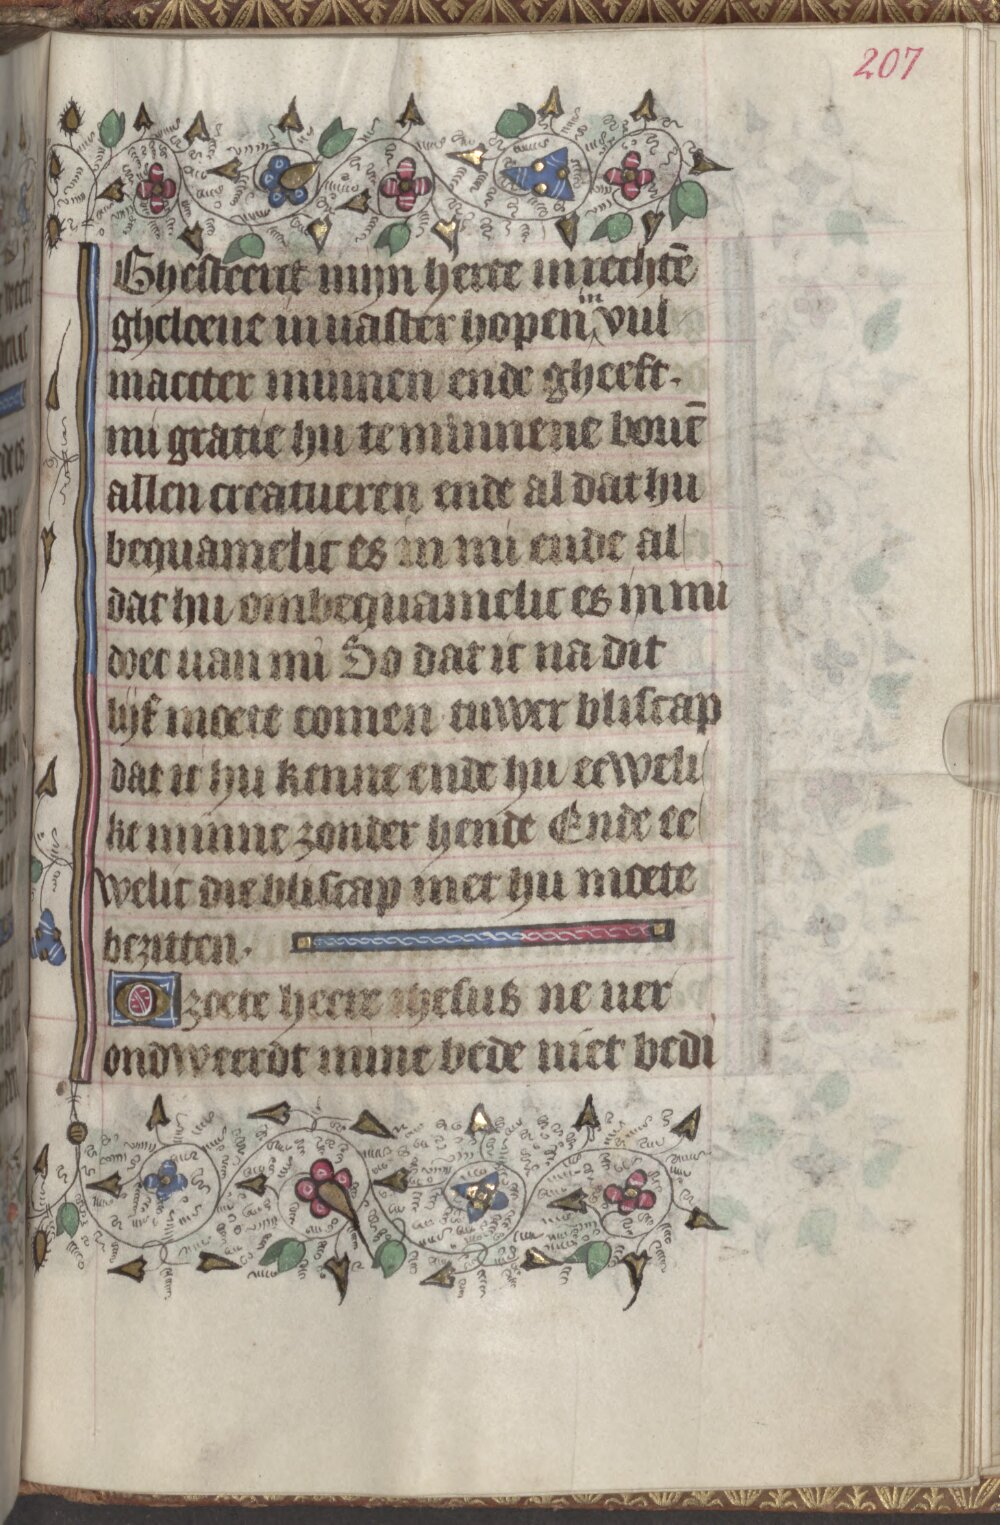 207
Ghesterct mijn herte in rechtē
gheloeue in uaster hopen in vul
maecter minnen ende gheeft.
mi gratie hu te minnene bouē
allen creatueren ende al dat hu
bequamelic es in mi ende al
dat hu ombequamelic es in mi
doet uan mi So dat ic na dit
lijf moete comen tuwer bliscap
dat ic hu kenne ende hu eeweli
ke minne zonder hende Ende ee
welic die bliscap met hu moete
bezitten.
O zoete heere ihesus ne uer
ondweerdt mine bede niet bedi